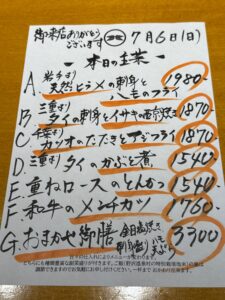 御来店ありがとう
ございます
7月6日(日)
ー 本日の主菜 ー
A. 岩手産 天然ヒラメの刺身と 1980-
ヒレフライ
B 三重産 タイの刺身とイサキの西京焼き 1870-
C 千葉産 カツオのたたきとアジフライ 1870-
D. 三重産 タイのかぶと煮 1540-
E. 重ねロースのとんかつ 1540-
F 和牛のメンチカツ 1760-
G. おまかせ御膳 3300
日々の仕入れによりメニューが変わります。